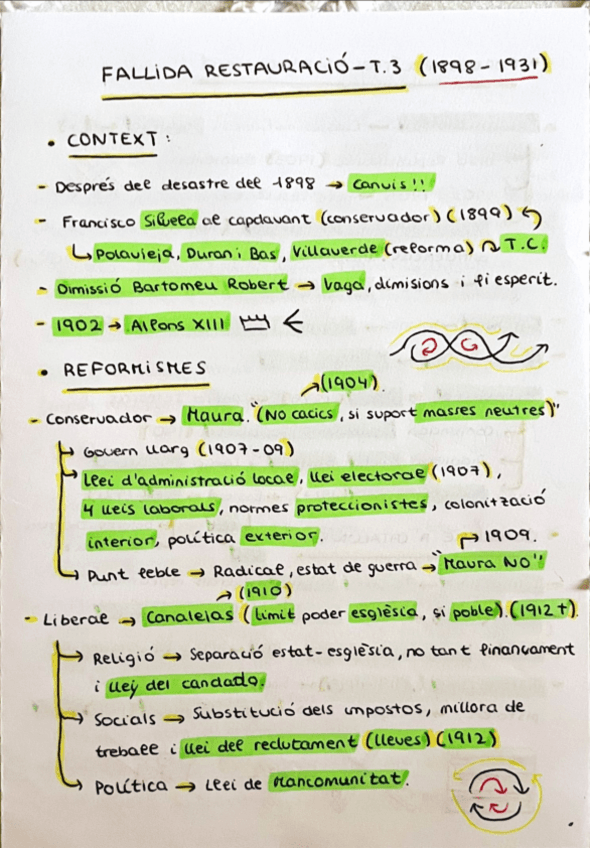 FALLIDA RESTAURACIÓ - T.3 (1898 - 1931)
• CONTEXT:
- Després del desastre del 1898 → Canvis!!
- Francisco Silvela al capdavant (conservador) (1899)
↳ Polavieja, Duran i Bas, Villaverde (reforma) T.C.
- Dimissió Bartomeu Robert → Vaga, dimisions i fi esperit.
- 1902 → Alfons XIII
• REFORMISMES
→ (1904)
- Conservador → Maura. (No cacics, si suport masses neutres)"
→ Govern llarg (1907 - 09)
→ Llei d'administració local, llei electoral (1907),
4 lleis laborals, normes proteccionistes, colonització
interior, política exterior.
→ 1909.
→ Punt feble → Radical, estat de guerra → "Maura NO"
→ (1910)
- Liberal → Canalejas (límit poder esglèsia, si poble). (1912 †)
→ Religió → Separació estat - esglèsia, no tant finançament
i llei del candado.
→ Socials → Substitució dels impostos, millora de
treball i llei del reclutament (lleves) (1912)
→ Política → Llei de Mancomunitat.